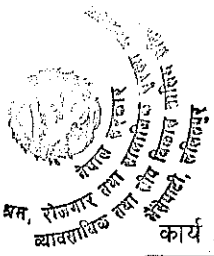 नेपाल सरकार
श्रम, रोजगार तथा सामाजिक
व्यावसायिक तथा सीप विकास तालिम
भैंसेपाटी, ललितपुर
कार्य